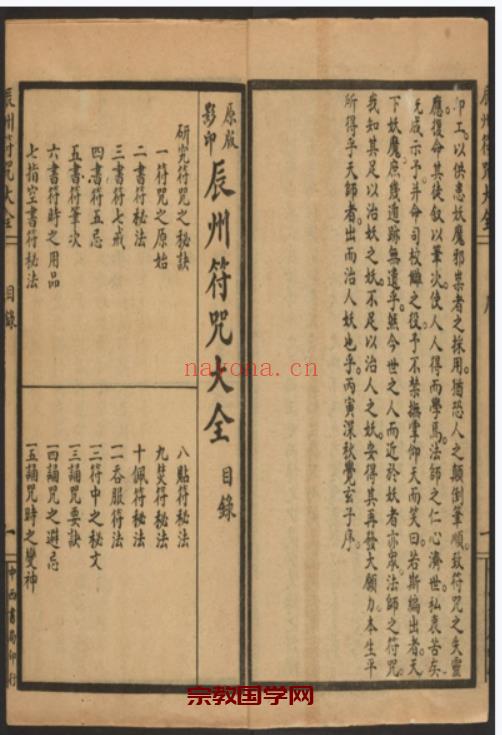 辰州符咒大全
序
印工。以供患妖魔邪祟者之採用。猶恐人之顛倒筆順。致符咒之失靈
應。復命其徒叙以筆次。使人人得而學焉。法師之仁心濟世。私衷苦矣。
既成示予。并命司校讎之役。予不禁撫掌仰天而笑曰。若斯編出者。天
下妖魔。庶幾遁跡無遺乎。然今世之人而近於妖者亦衆。法師之符咒。
我知其足以治妖之妖。不足以治人之妖。安得其再發大願力。本生平
所得乎天師者。出而治人妖也乎。丙寅深秋覺玄子序。
原版
影印
辰州符咒大全 目錄
研究符咒之秘訣
一符咒之原始
二書符秘法
三書符七戒
四書符五忌
五書符筆次
六書符時之用品
七指空書符秘法
八貼符秘法
九焚符秘法
十佩符秘法
一一吞服符法
一二符中之秘文
一三誦咒要訣
一四誦咒之避忌
一五誦咒時之變神
辰州符咒大全
目錄
一
中西書局印行
nayona.cn
宗教国学网